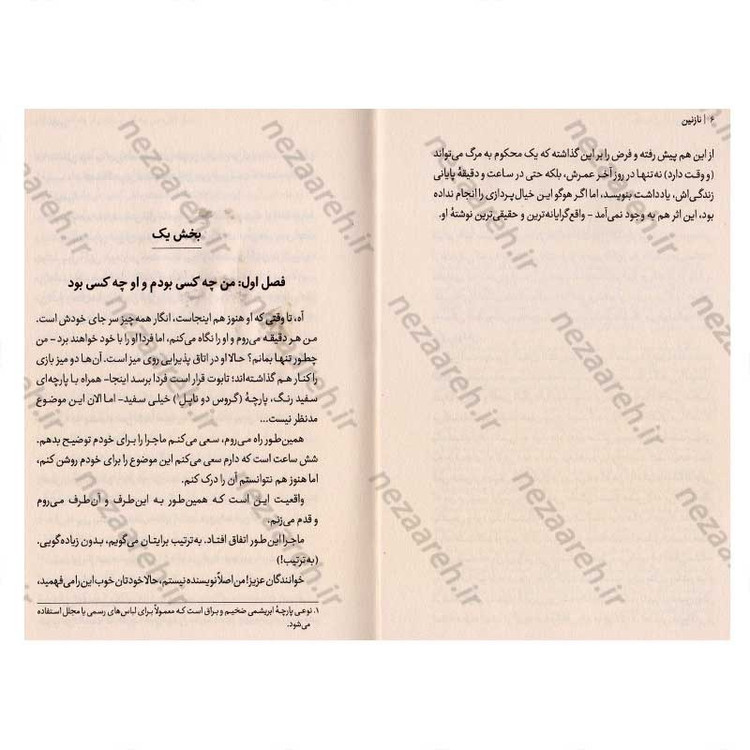 ۶ | نازنین
از این هم پیش رفته و فرض را بر این گذاشته که یک محکوم به مرگ می‌تواند
(و وقت دارد) نه‌تنها در روز آخر عمرش، بلکه حتی در ساعت و دقیقهٔ پایانی
زندگی‌اش، یادداشت بنویسد، اما اگر هوگو این خیال‌پردازی را انجام نداده
بود، این اثر هم به وجود نمی‌آمد – واقع‌گرایانه‌ترین و حقیقی‌ترین نوشتهٔ او.
بخش یک
فصل اول: من چه کسی بودم و او چه کسی بود
آه، تا وقتی که او هنوز هم اینجاست، انگار همه‌چیز سر جای خودش است.
من هر دقیقه می‌روم و او را نگاه می‌کنم، اما فردا او را با خود خواهند برد – من
چطور تنها بمانم؟ حالا او در اتاق پذیرایی روی میز است. آن‌ها دو میز بازی
را کنار هم گذاشته‌اند؛ تابوت قرار است فردا برسد اینجا– همراه با پارچه‌ای
سفید رنگ، پارچهٔ (گروس دو ناپل¹) خیلی سفید– اما الان این موضوع
مدنظر نیست...
همین‌طور راه می‌روم، سعی می‌کنم ماجرا را برای خودم توضیح بدهم.
شش ساعت است که دارم سعی می‌کنم این موضوع را برای خودم روشن کنم،
اما هنوز هم نتوانستم آن را درک کنم.
واقعیت این است که همین‌طور به این‌طرف و آن‌طرف می‌روم
و قدم می‌زنم.
ماجرا این‌طور اتفاق افتاد. به‌ترتیب برایتان می‌گویم، بدون زیاده‌گویی.
(به‌ترتیب!)
خوانندگان عزیز! من اصلاً نویسنده نیستم، حالا خودتان خوب این را می‌فهمید،
۱. نوعی پارچهٔ ابریشمی ضخیم و براق است که معمولاً برای لباس‌های رسمی یا مجلل استفاده
می‌شود.
nezaareh.ir
nezaareh.ir
nezaareh.ir
nezaareh.ir
nezaareh.ir
nezaareh.ir
nezaareh.ir
nezaareh.ir
nezaareh.ir